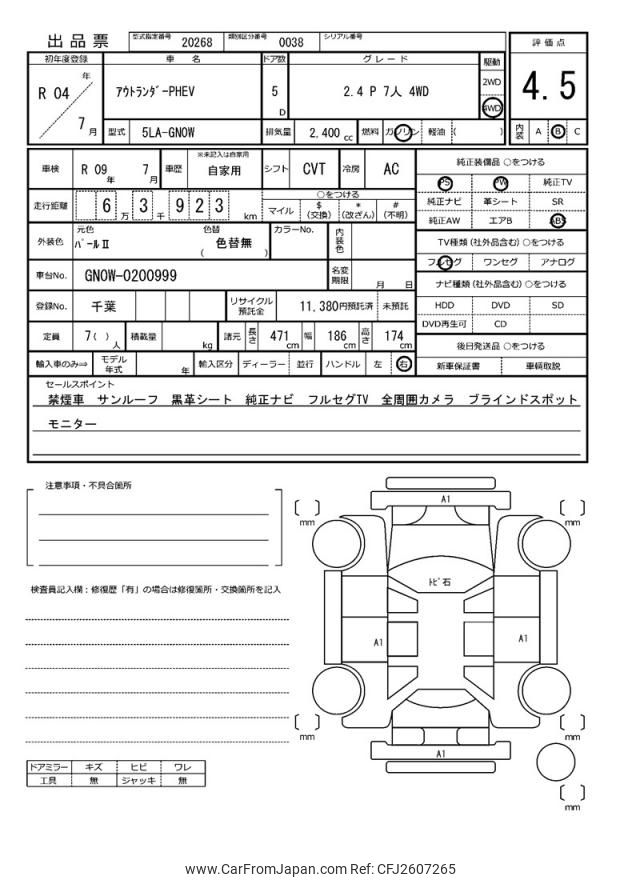 出品票 型式指定番号 20268 類別区分番号 0038 シリアル番号
評価点
4.5
初年度登録 車名 ドア数 グレード 駆動
R 04 年 7 月
アウトランダ-PHEV 5 D 2.4 P 7人 4WD 2WD 4WD
型式 5LA-GN0W 排気量 2,400 cc 燃料 ガソリン 軽油 ( ) 内装 A B C
車検 R 09 年 7 月 車歴 ※未記入は自家用 自家用 シフト CVT 冷房 AC
走行距離 6 万 3 千 9 2 3 km ○をつける マイル $ (交換) * (改ざん) # (不明)
外装色 元色 パールⅡ 色替 ( 色替無 ) カラーNo. 内装色
車台No. GN0W-0200999 名変期限 月 日
登録No. 千葉 リサイクル預託金 11,380円預託済 未預託
定員 7( ) 人 積載量 kg 諸元 長さ 471 cm 幅 186 cm 高さ 174 cm
輸入車のみ⇒ モデル年式 年 輸入区分 ディーラー 並行 ハンドル 左 右
純正装備品 ○をつける
PS PW 純正TV
純正ナビ 革シート SR
純正AW エアB ABS
TV種類 (社外品含む) ○をつける
フルセグ ワンセグ アナログ
ナビ種類 (社外品含む) ○をつける
HDD DVD SD
DVD再生可 CD
後日発送品 ○をつける
新車保証書 車輌取説
セールスポイント
禁煙車 サンルーフ 黒革シート 純正ナビ フルセグTV 全周囲カメラ ブラインドスポット
モニター
注意事項・不具合箇所
検査員記入欄:修復歴「有」の場合は修復箇所・交換箇所を記入
ドアミラー キズ ヒビ ワレ
工具 無 ジャッキ 無
A1
mm mm
トビ石
A1 A1
mm mm
A1
mm
www.CarFromJapan.com Ref: CFJ2607265